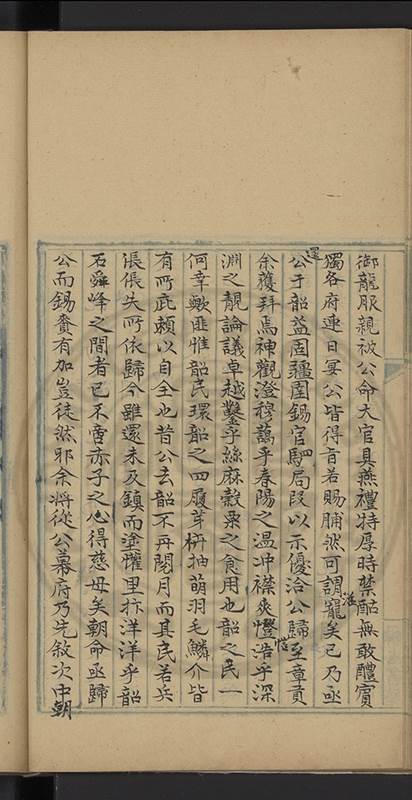 御龍服親被公命大官具燕禮特厚時禁酤無敢醴賓
獨各府連日宴公皆得旨若賜脯然可謂寵矣已乃亟
還公于韶益固疆圉錫官駟局段以示優洽公歸至章貢
余獲拜焉神觀澄穆藹乎春陽之温冲襟爽愷浩乎深
淵之靚論議卓越鑿乎絲麻穀粟之食用也韶之民一
何幸歟匪惟韶民環韶之四履芽枿抽萌羽毛鱗介皆
有所庇賴以自全也昔公去韶不再閱月而其民若兵
張張失所依歸今雖還未及鎮而塗懽里抃洋洋乎韶
石舜峰之間者已不啻赤子之心得慈母矣朝命亟歸
公而錫賚有加豈徒然邪余將從公幕府乃先敘次中朝